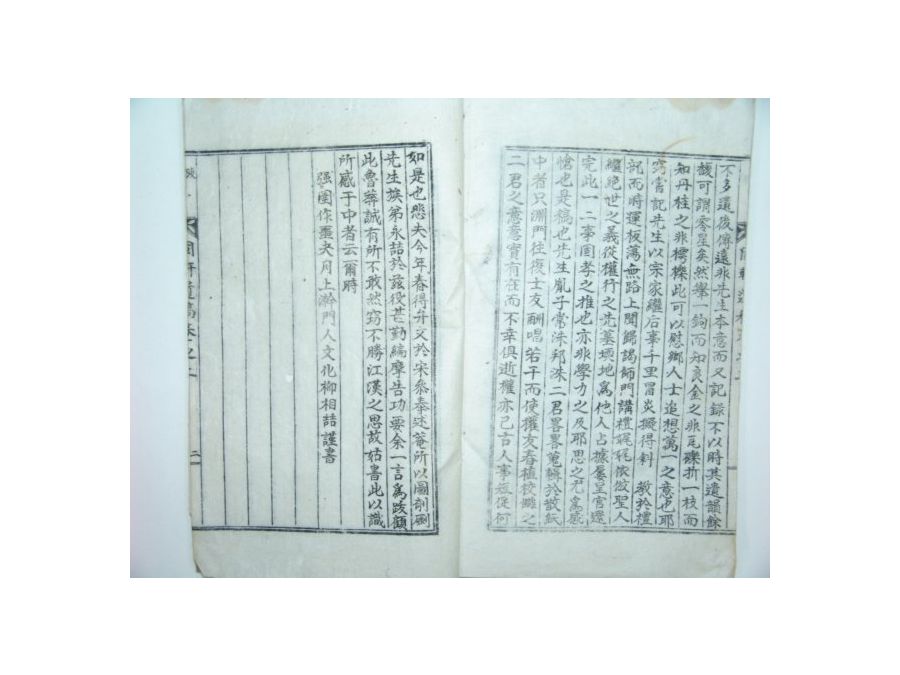 不多遠後傳遠非先生本意而又記錄不以時其遺韻餘
馥可謂零星矣然擧一鉤而知良金之非瓦礫折一枝而
知丹桂之非樗櫟此可以慰鄕人士追想萬一之意也耶
窃嘗記先生以宋家繼后事千里冒炎擬得斜 敎於禮
部而時運板蕩無路上聞歸謁師門講禮娓娓依倣聖人
繼絶世之義從權行之先墓壖地爲他人占據屢呈官還
完此一二事固孝之推也亦非學力之及耶思之尤爲感
愴也是稿也先生胤子常洙邦洙二君畧畧蒐輯於散紙
中者只淵門往復士友酬唱若干而使權友春植校讎之
二君之意意實有在而不幸俱逝權亦已古人事遂從何
如是也悲夫今年春得升文於宋參奉述菴所以圖剞劂
先生族弟永喆於玆役芒勤編摩告功要余一言爲跋顧
此魯莽誠有所不敢然窃不勝江漢之思故姑書此以識
所感于中者云爾時
强圉作噩夾月上澣門人文化柳相喆謹書
跋
遺稿卷之二
二